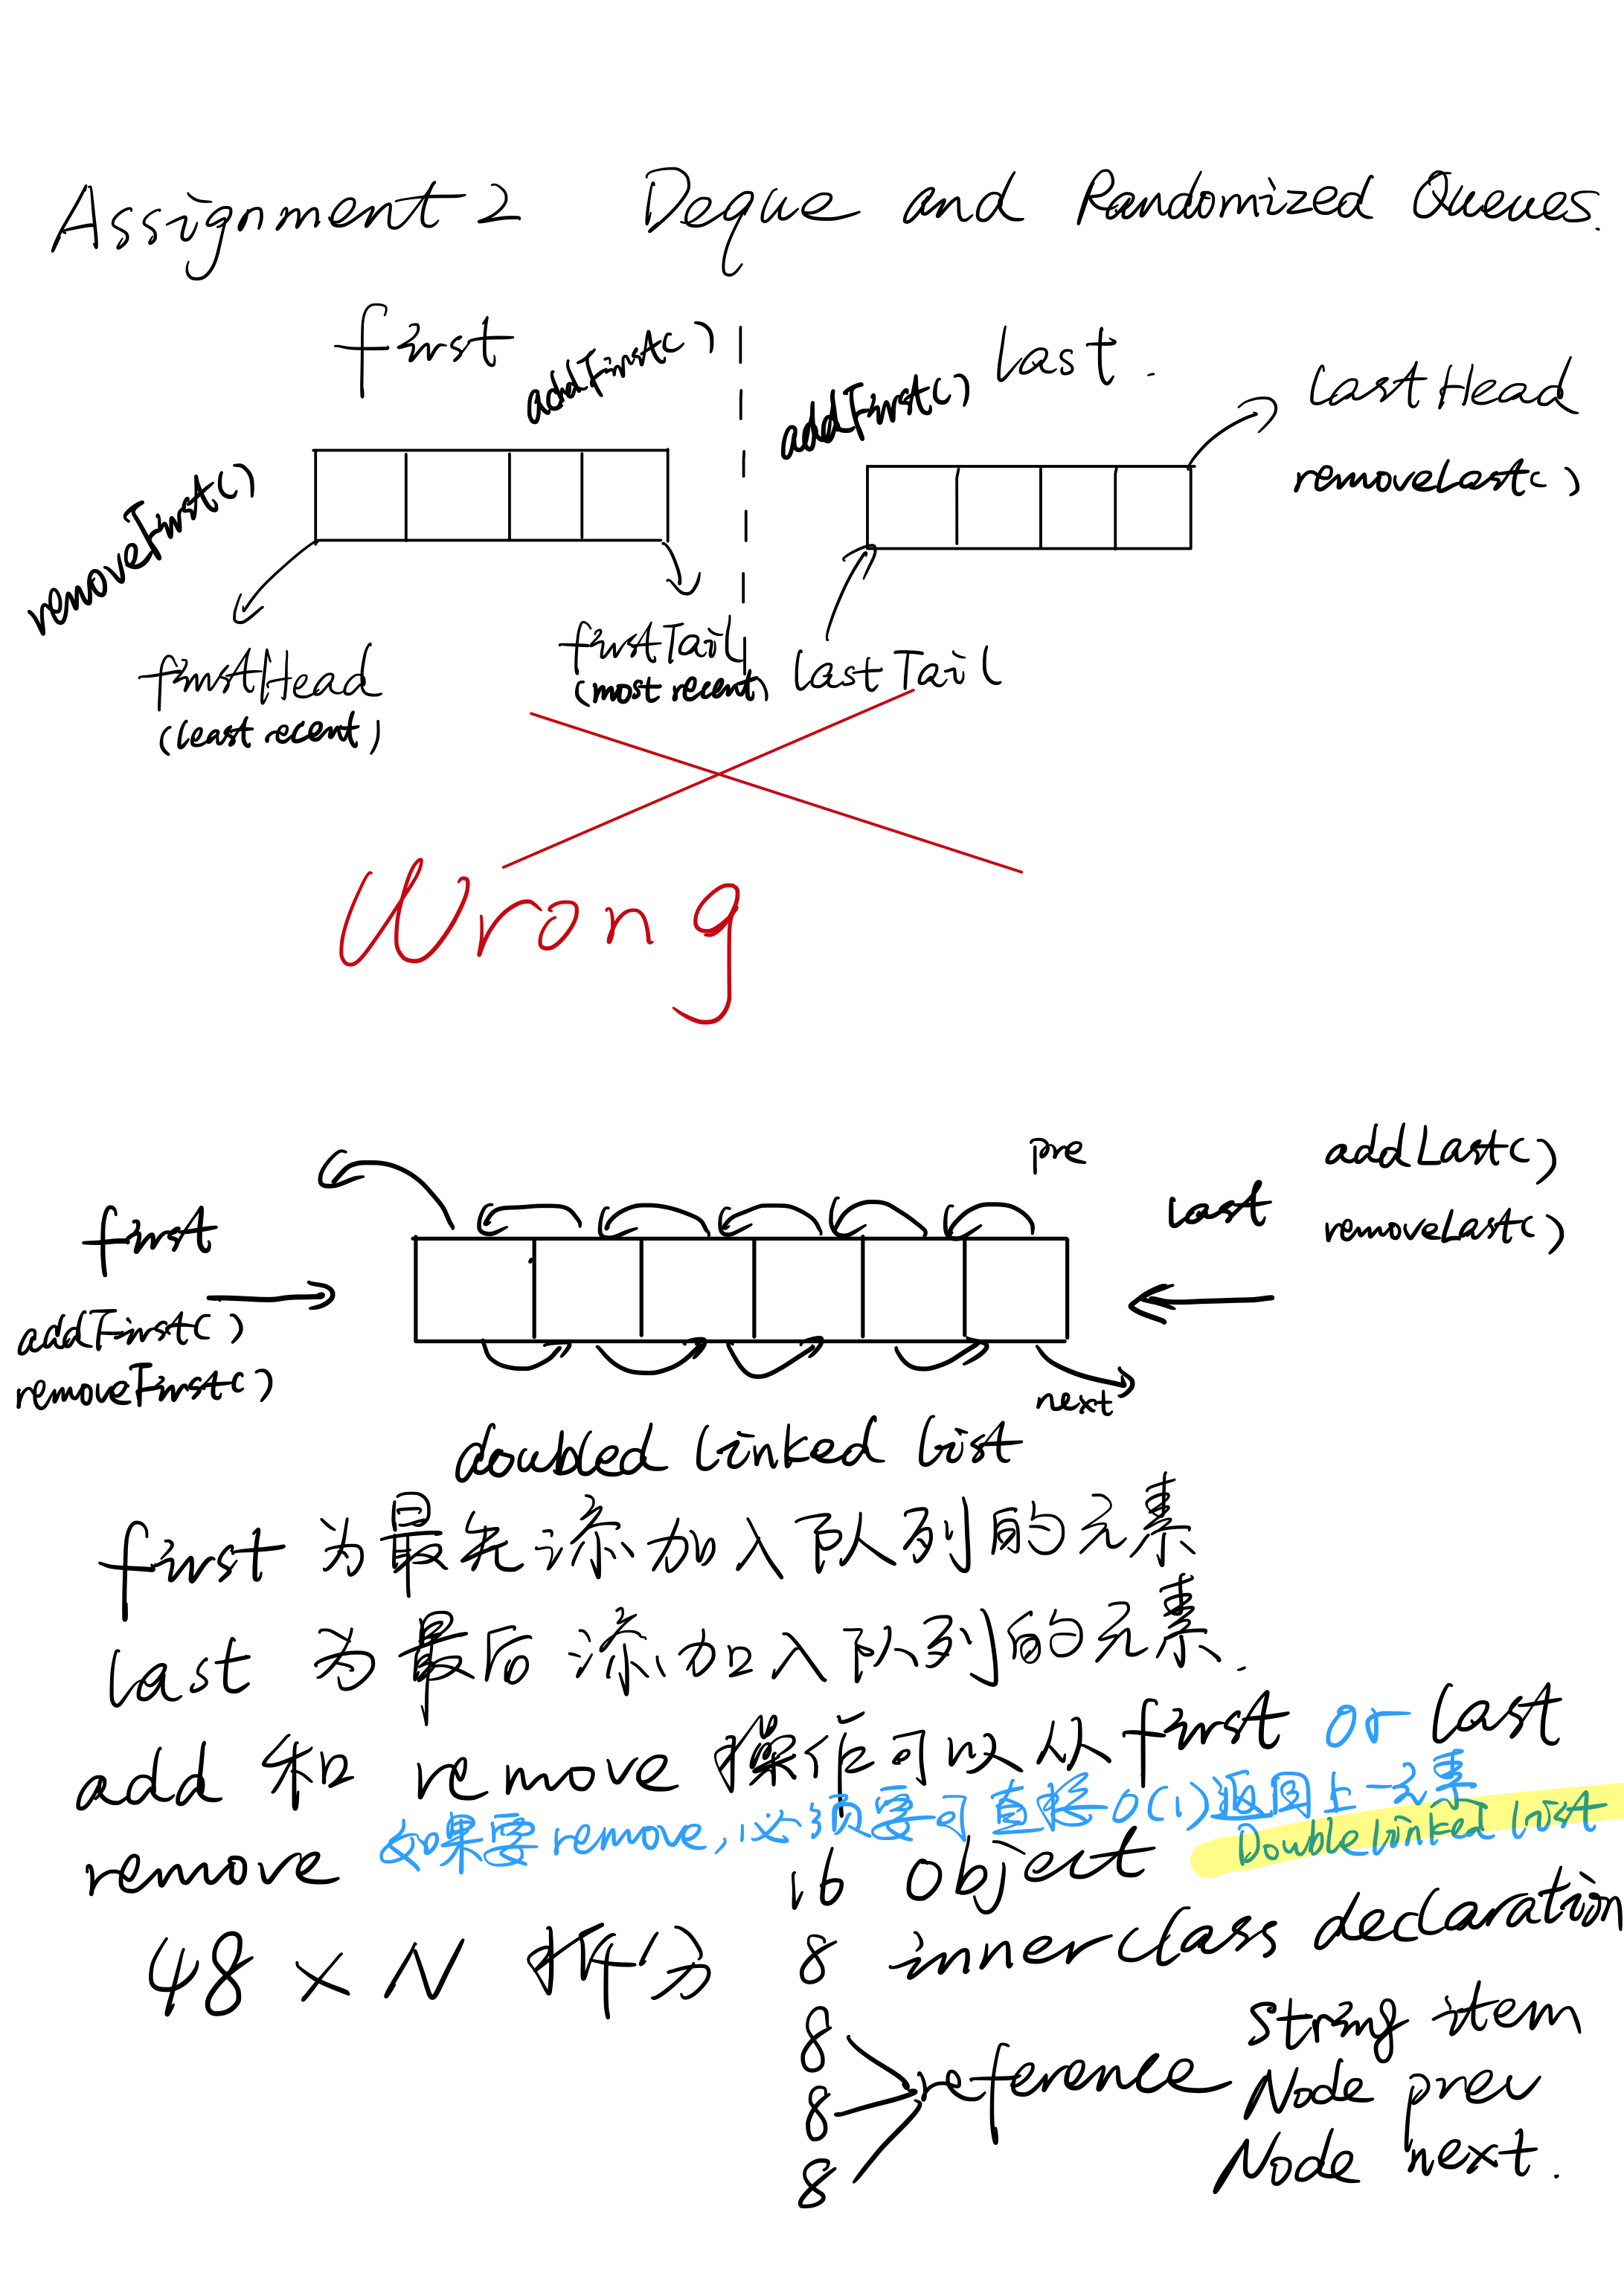 Assignment 2 Deque and Randomized Queues.
first
addFirst()
addFirst()
last.
lastHead
removeLast()
removeFirst()
firstHead
(least recent)
firstTail
(most recent)
lastTail
Wrong
pre
addLast()
removeLast()
last
first
addFirst()
removeFirst()
next
doubled linked list
first 为最先添加入队列的元素
last 为最后添加入队列的元素.
add 和 remove 操作可以从 first or last
如果要 remove, 必须要可直接 O(1) 返回上一元素
Double linked list
remove
16 object
48 × N 拆分
8 inner class declaration
8 String item
8 reference Node prev
8 Node next.